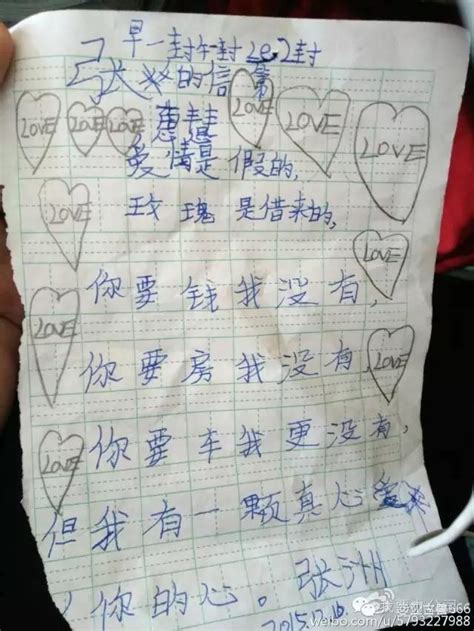 早一封午一封 2e.2封
的信
LOVE LOVE LOVE LOVE LOVE LOVE
爱情是假的,
玫瑰是借来的,
LOVE LOVE
你要钱我没有,
LOVE
你要房我没有, LOVE
你要车我更没有,
LOVE
但我有一颗真心
你的心。张洲
2015.12.10
weibo.com/u/5793227988